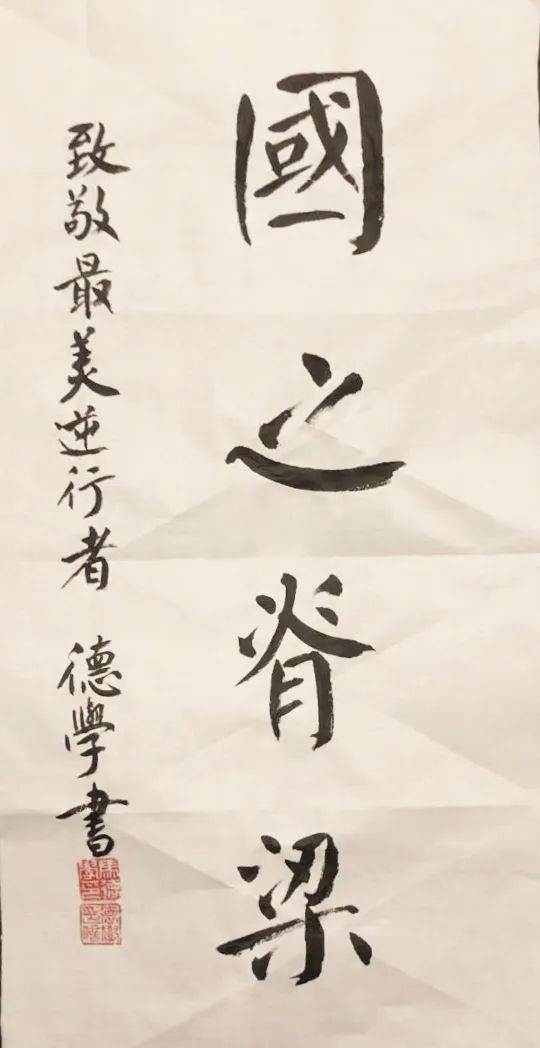 國之脊梁
致敬最美逆行者 德學書